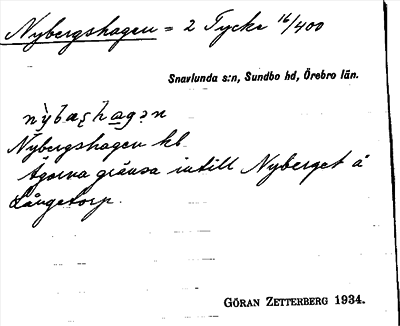 Nybergshagen = 2 Tycke 16/400
Snarlunda s:n, Sundbo hd, Örebro län.
Nybergshagen hb
Ägorna gränsa intill Nyberget å
Långetorp.
GÖRAN ZETTERBERG 1934.